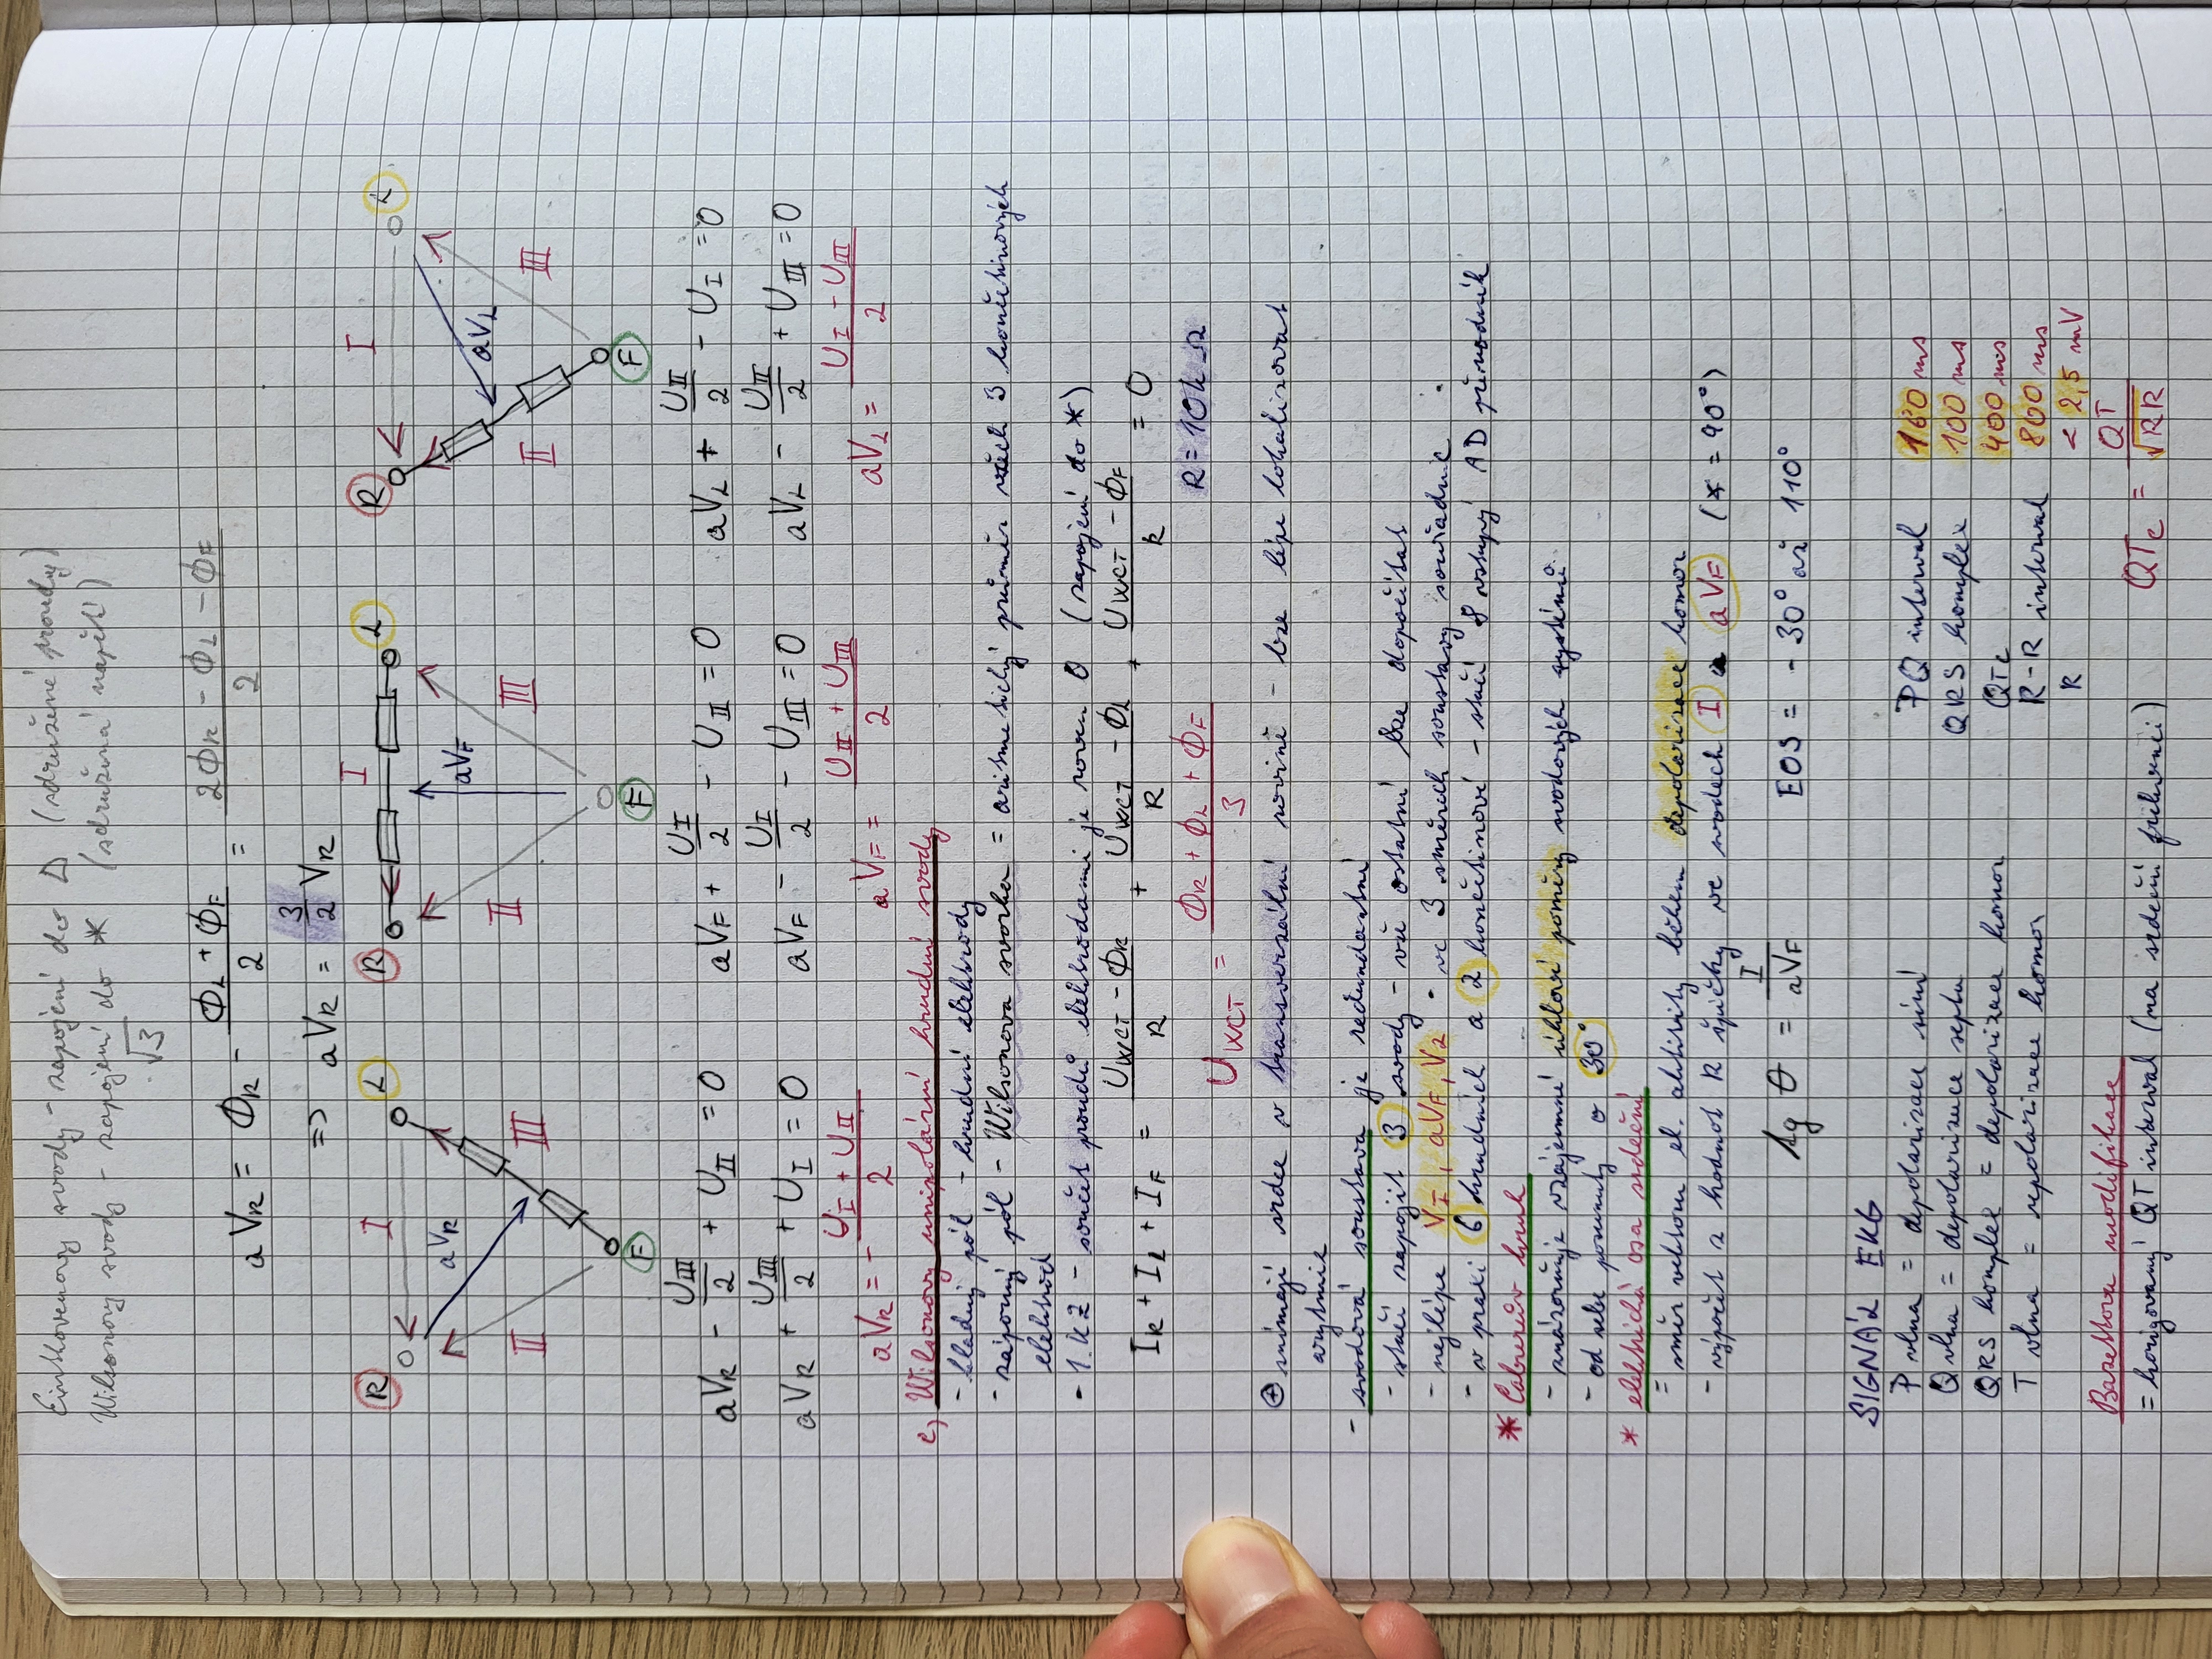 Einthovenovy svody - zapojení do Δ (sdružené proudy)
Wilsonovy svody - zapojení do * (sdružená napětí)
√3
aVR = ΦR - (ΦL + ΦF)/2 = (2ΦR - ΦL - ΦF)/2
=> aVR = 3/2 VR
R I L R I L R I L
aVR aVF aVL
II III II III II III
F F F
aVR - UIII/2 + UII = 0 aVF + UI/2 - UII = 0 aVL + UII/2 - UI = 0
aVR + UIII/2 + UI = 0 aVF - UI/2 - UIII = 0 aVL - UII/2 + UIII = 0
aVR = - (UI + UII)/2 aVF = (UII + UIII)/2 aVL = (UI - UIII)/2
c) Wilsonovy unipolární hrudní svody
- kladný pól - hrudní elektrody
- záporný pól - Wilsonova svorka = aritmetický průměr všech 3 končetinových
elektrod
- 1. KZ - součet proudů elektrodami je roven 0 (zapojení do *)
IR + IL + IF = (UWCT - ΦR)/R + (UWCT - ΦL)/R + (UWCT - ΦF)/R = 0
UWCT = (ΦR + ΦL + ΦF)/3 R = 10k Ω
⊕ snímají srdce v transverzální rovině - lze lépe lokalizovat
arytmie
- svodová soustava je redundantní
- stačí zapojit 3 svody - vše ostatní lze dopočítat
- nejlépe VI, aVF, V2 - ve 3 směrech soustavy souřadnic
- v praxi 6 hrudních a 2 končetinové - stačí 8 vstupý AD převodník
* Cabrerův kruh
- znázorňuje vzájemné úhlové poměry svodových systémů
- od sebe posunuty o 30°
* elektrická osa srdeční
= směr vektoru el. aktivity během depolarizace komor
- výpočet z hodnot R špičky ve svodech I a aVF (∢ = 90°)
tg Θ = I/aVF EOS = - 30° až 110°
SIGNÁL EKG
P vlna = depolarizace síní PQ interval 160 ms
Q vlna = depolarizace septa QRS komplex 100 ms
QRS komplex = depolarizace komor QTc 400 ms
T vlna = repolarizace komor R-R interval 800 ms
R < 2,5 mV
Bazettova modifikace
= korigovaný QT interval (na srdeční frekvenci) QTc = QT/√RR